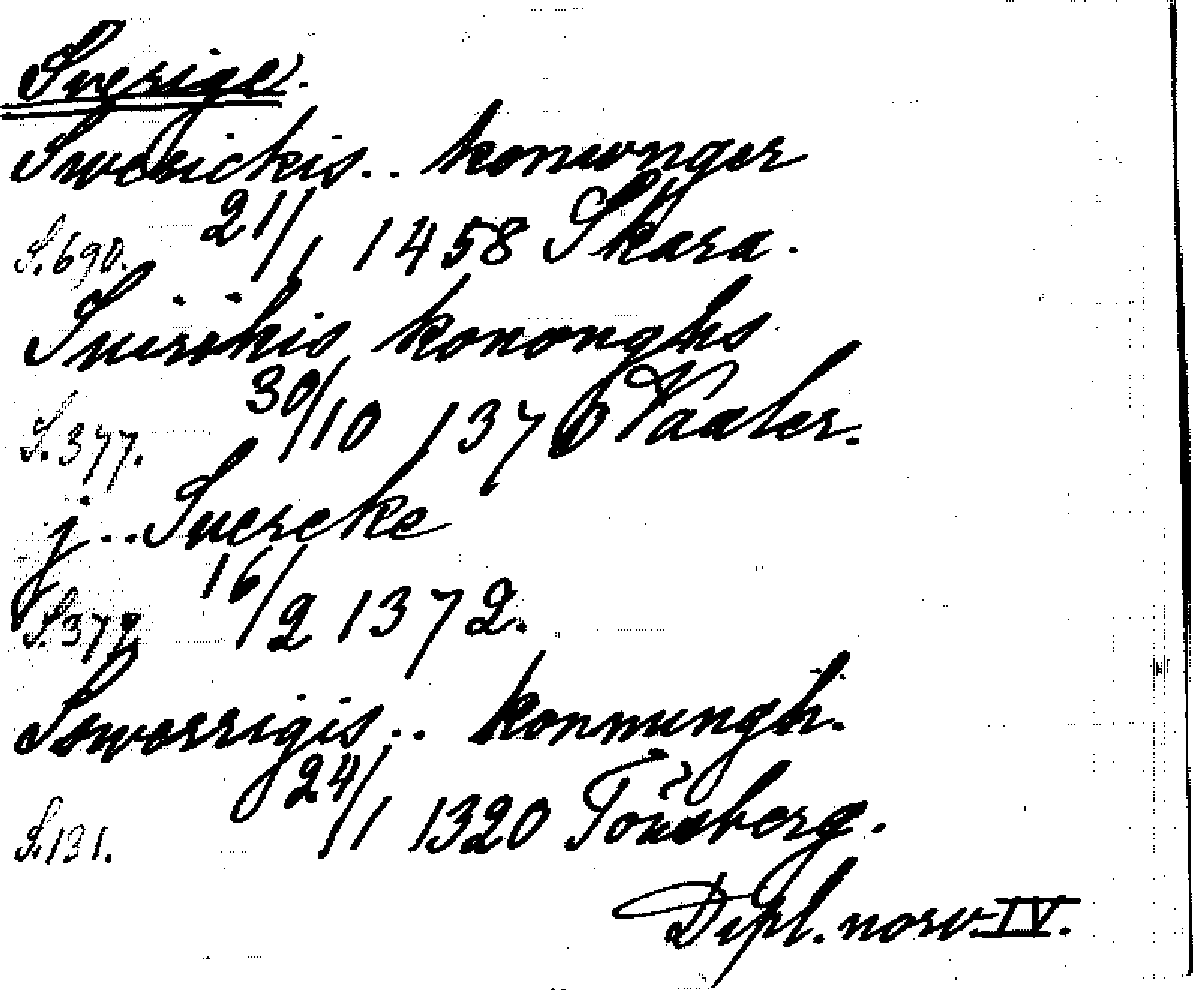 Sverige.
Swerickis.. konwnger
S. 690. 21/1 1458 Skara.
Suirikis kononghs
S. 377. 30/10 1370 Vaaler.
j.. Suercke
S. 377 16/2 1372.
Swerrigis.. konnungh.
S. 131. 24/1 1320 Tönsberg.
Dipl. norv. IV.